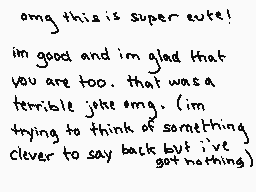 omg this is super cute!
im good and im glad that
you are too. that was a
terrible joke omg. (im
trying to think of something
clever to say back but i've
got nothing)